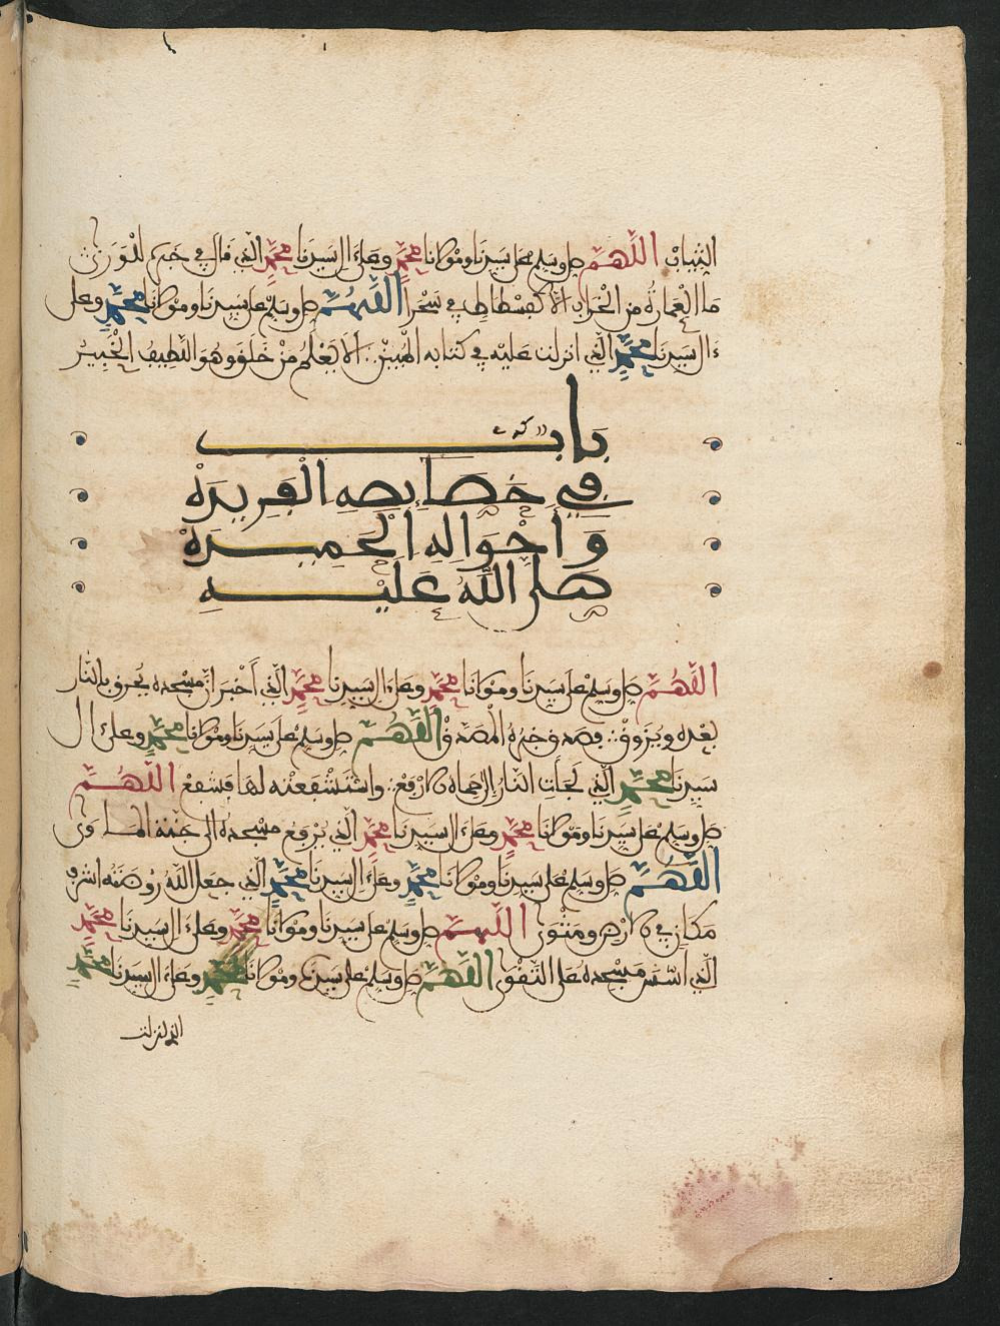 الثياب اللهم صل وسلم على سيدنا ومولانا محمد وعلى ءال سيدنا محمد الذي قال في خبره
ما العمارة من الخراب الا كفسطاط في سحرا اللهم صل وسلم على سيدنا ومولانا محمد وعلى
ءال سيدنا محمد الذي انزلت عليه في كتابه المبين ألا يعلم من خلق وهو اللطيف الخبير
باب
في خصايصه الفريدة
وأحواله الحميدة
صلى الله عليه
اللهم صل وسلم على سيدنا ومولانا محمد وعلى ءال سيدنا محمد الذي أخبر ان مسجده يحرف بالنار
بعده ويزوق فصدق خبره المصدق اللهم صل وسلم على سيدنا ومولانا محمد وعلى ءال
سيدنا محمد الذي لجأت النار الى حماه واستشفعته لها فشفع اللهم
صل وسلم على سيدنا ومولانا محمد وعلى ءال سيدنا محمد الذي يرفع مسجده الى جنة الماوى
اللهم صل وسلم على سيدنا ومولانا محمد وعلى ءال سيدنا محمد الذي جعل الله روضته اشرف
مكان في الارض ومثوى اللهم صل وسلم على سيدنا ومولانا محمد وعلى ءال سيدنا محمد
الذي اسس مسجده على التقوى اللهم صل وسلم على سيدنا ومولانا محمد وعلى ءال سيدنا محمد
الذي انزلت